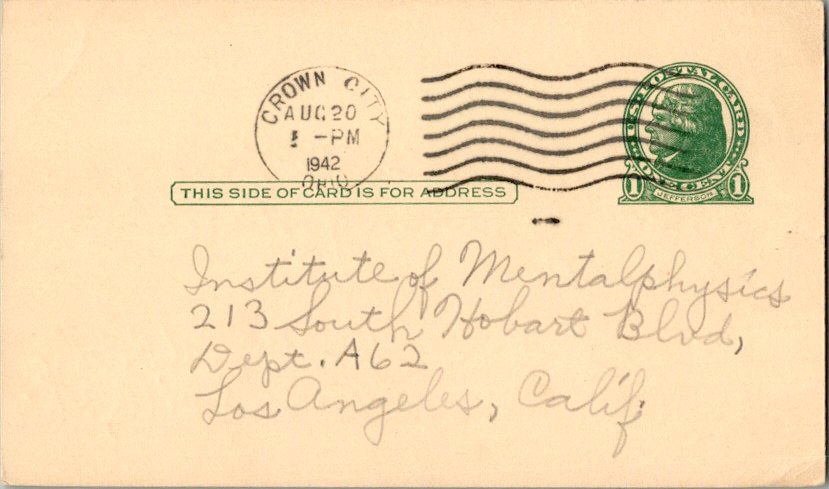 CROWN CITY
AUG 20
-PM
1942
OHIO
U·S·POSTAL CARD
ONE CENT
1 JEFFERSON 1
THIS SIDE OF CARD IS FOR ADDRESS
Institute of Mentalphysics
213 South Hobart Blvd,
Dept. A62
Los Angeles, Calif.